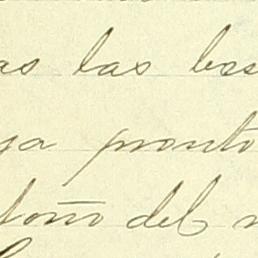 as las bas
ya pronto
toño del